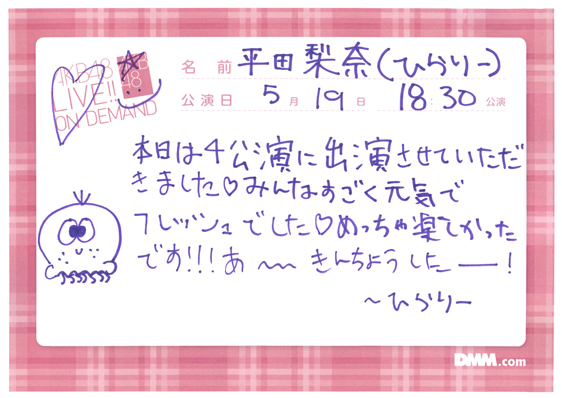 AKB48
LIVE!!
ON DEMAND
AKB
48
名前 平田梨奈(ひらりー)
公演日 5月19日 18:30公演
本日は4公演に出演させていただ
きました♡みんなすごく元気で
フレッシュでした♡めっちゃ楽しかった
です!!!あ〜〜きんちょうしたー!
〜ひらりー
DMM.com